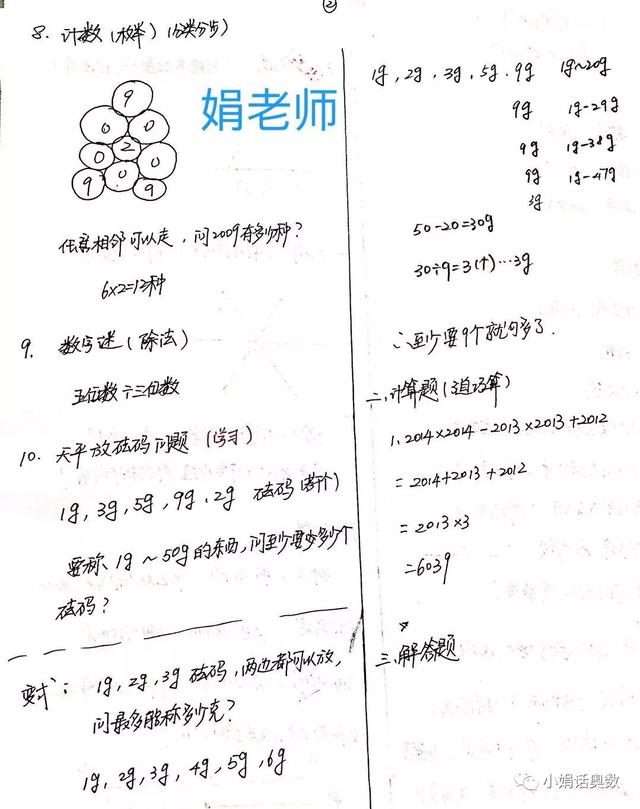 ②
8. 计数（枚举）（分类分步）
娟老师
9
0 0
0 2 0
9 0 9
任意相邻可以走，问2009有多少种？
6×2=12种
9. 数字迷（除法）
五位数÷三位数
10. 天平放砝码问题（学习）
1g, 3g, 5g, 9g, 2g 砝码（若干个）
要称 1g ~ 50g 的东西，问至少要多少个
砝码？
变式：1g, 2g, 3g 砝码，两边都可以放，
问最多能称多少克？
1g, 2g, 3g, 4g, 5g, 6g
1g, 2g, 3g, 5g, 9g 1g~20g
9g 1g-29g
9g 1g-38g
9g 1g-47g
3g
50-20=30g
30÷9=3(个)…3g
∴至少要9个就够了.
二、计算题（速算巧算）
1. 2014×2014-2013×2013+2012
=2014+2013+2012
=2013×3
=6039
三、解答题
小娟话奥数